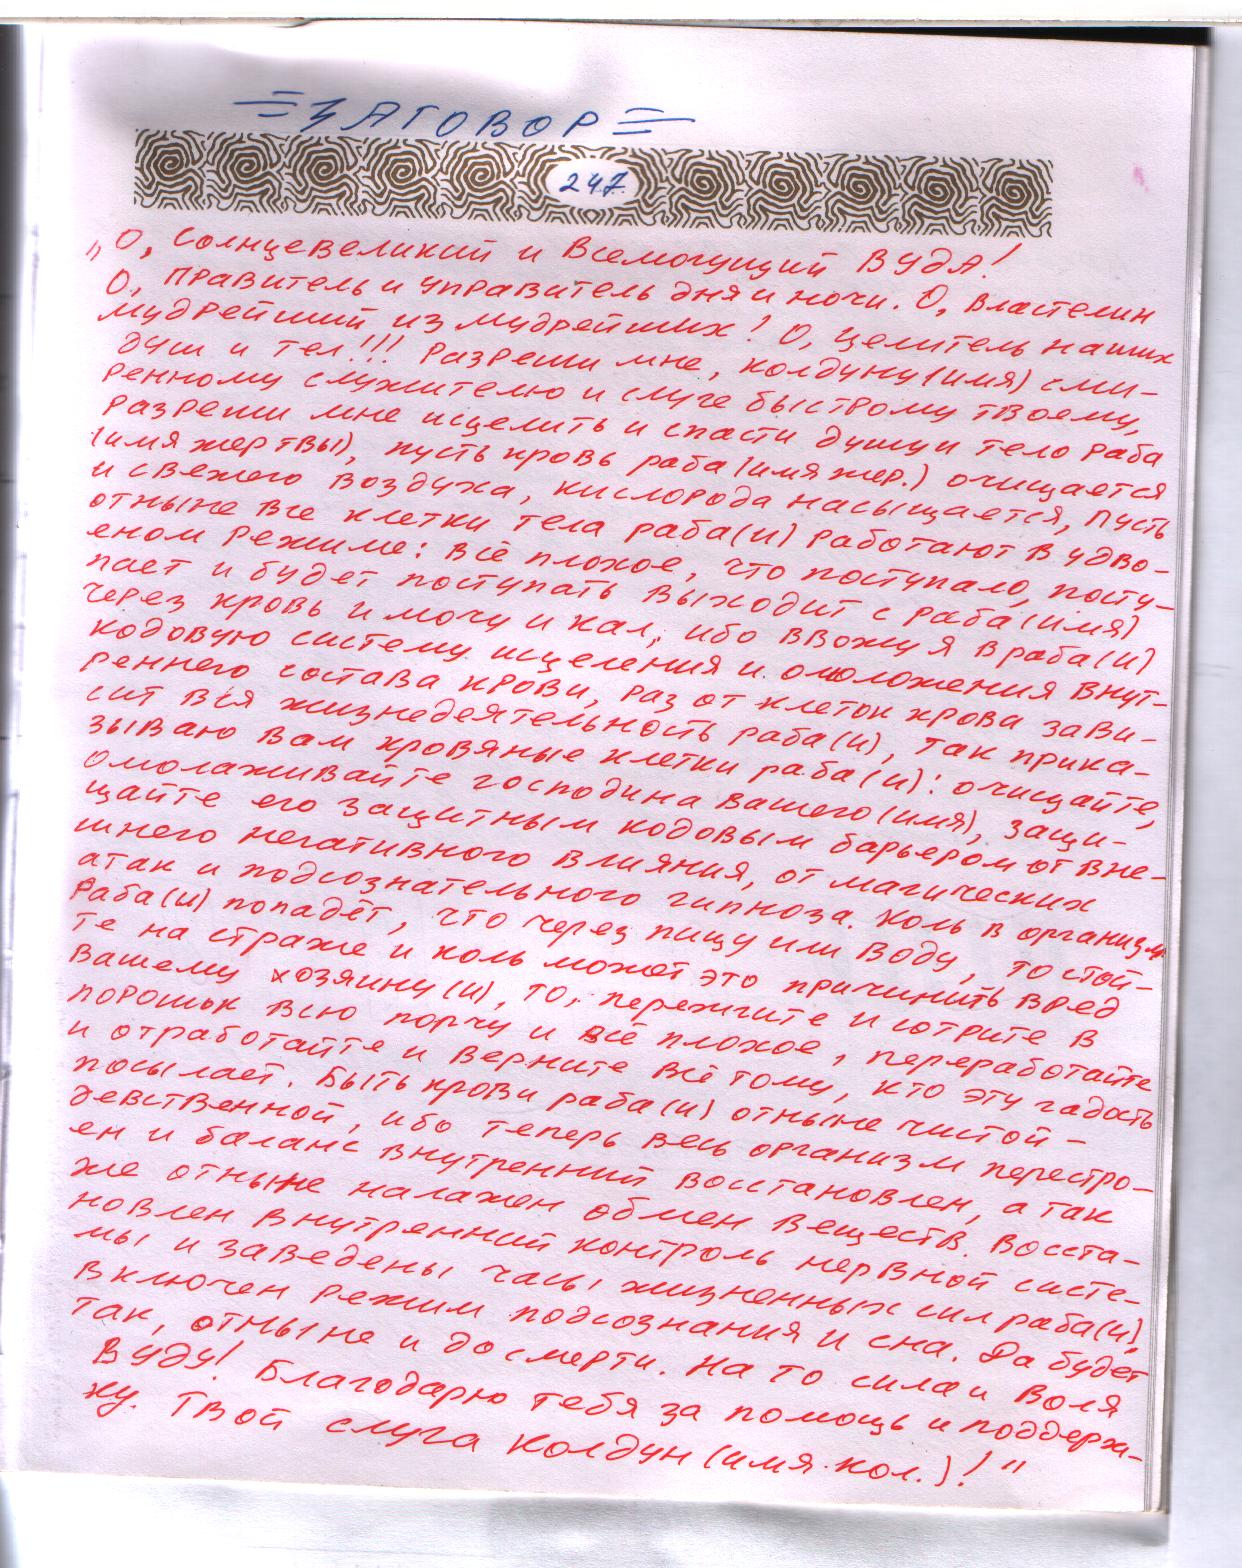 ЗАГОВОР
247.
„О, Солнцевеликий и Всемогущий ВУДА!
О, правитель и управитель дня и ночи. О, властелин
мудрейший из мудрейших! О, целитель наших
душ и тел!!! Разреши мне, колдуну (имя) сми-
ренному служителю и слуге быстрому твоему,
разреши мне исцелить и спасти душу и тело раба
(имя жертвы), пусть кровь раба (имя жер.) очищается
и свежего воздуха, кислорода насыщается, пусть
отныне все клетки тела раба(и) работают в удво-
еном режиме: всё плохое, что поступало, посту-
пает и будет поступать выходит с раба (имя)
через кровь и мочу и кал, ибо ввожу я в раба(и)
кодовую систему исцеления и омоложения внут-
реннего состава крови, раз от клеток крова зави-
сит вся жизнедеятельность раба(и), так прика-
зываю вам кровяные клетки раба(и): очищайте,
омолаживайте господина вашего (имя), защи-
щайте его защитным кодовым барьером от вне-
шнего негативного влияния, от магических
атак и подсознательного гипноза. Коль в организм
раба(и) попадёт, что через пищу или воду, то стой-
те на страже и коль может это причинить вред
вашему хозяину(и), то, пережгите и сотрите в
порошок всю порчу и всё плохое, переработайте
и отработайте и верните всё тому, кто эту гадость
посылает. Быть крови раба(и) отныне чистой –
девственной, ибо теперь весь организм перестро-
ен и баланс внутренний восстановлен, а так
же отныне налажен обмен веществ. Восста-
новлен внутренний контроль нервной систе-
мы и заведены часы жизненных сил раба(и),
включен режим подсознания и сна. Да будет
так, отныне и до смерти. На то сила и Воля
Вуду! Благодарю тебя за помощь и поддерж-
ку. Твой слуга колдун (имя кол.)!"